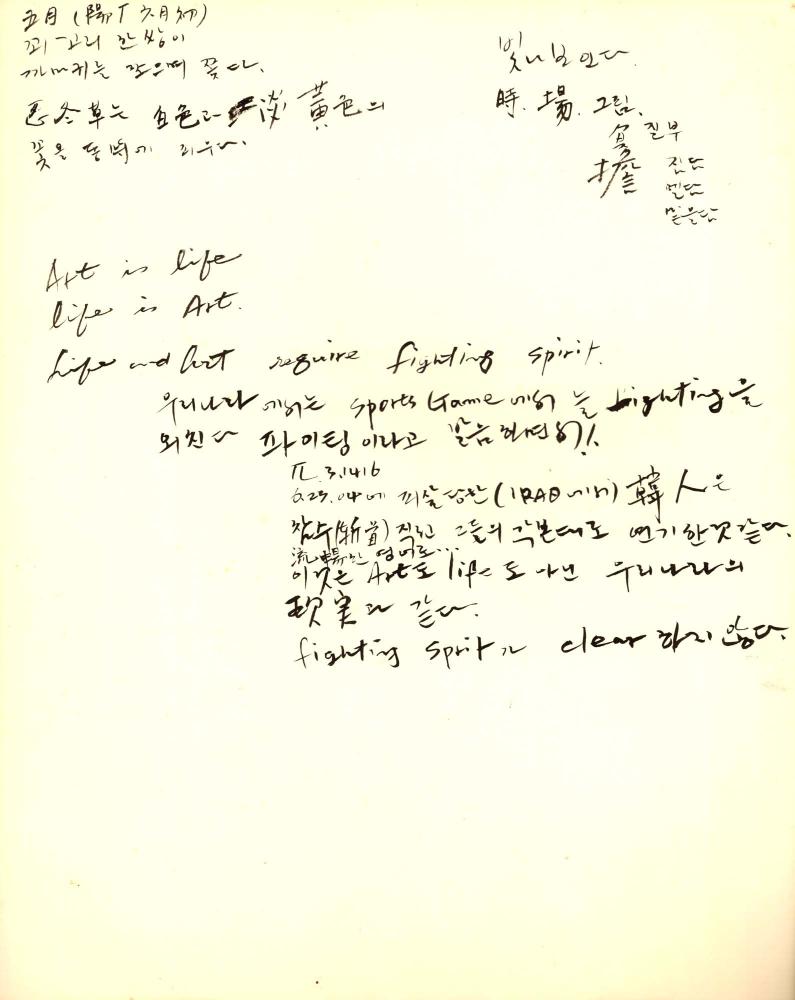 五月 (陽丁 六月初)
꾀꼬리 한쌍이
까마귀는 쫓다.
忍冬草는 白色과 淡黃色의
꽃을 동시에 피우다.
빛나 보인다.
時. 場. 그림.
負 질부
擔 진다
멜담
Art is life
life is Art.
Life and Art require fighting spirit.
우리나라에서는 sports Game에서 늘 fighting을
외친다 파이팅이라고 발음하면서
π 3.1416
6.23.04에 피살당한 (IRAQ에서) 韓人은
참수(斬首)직전 그들의 각본대로 연기한것 같다.
流暢한 영어로...
이것은 Art도 life도 아닌 우리나라의
現実과 같다.
fighting spirit가 clear하지 않다.